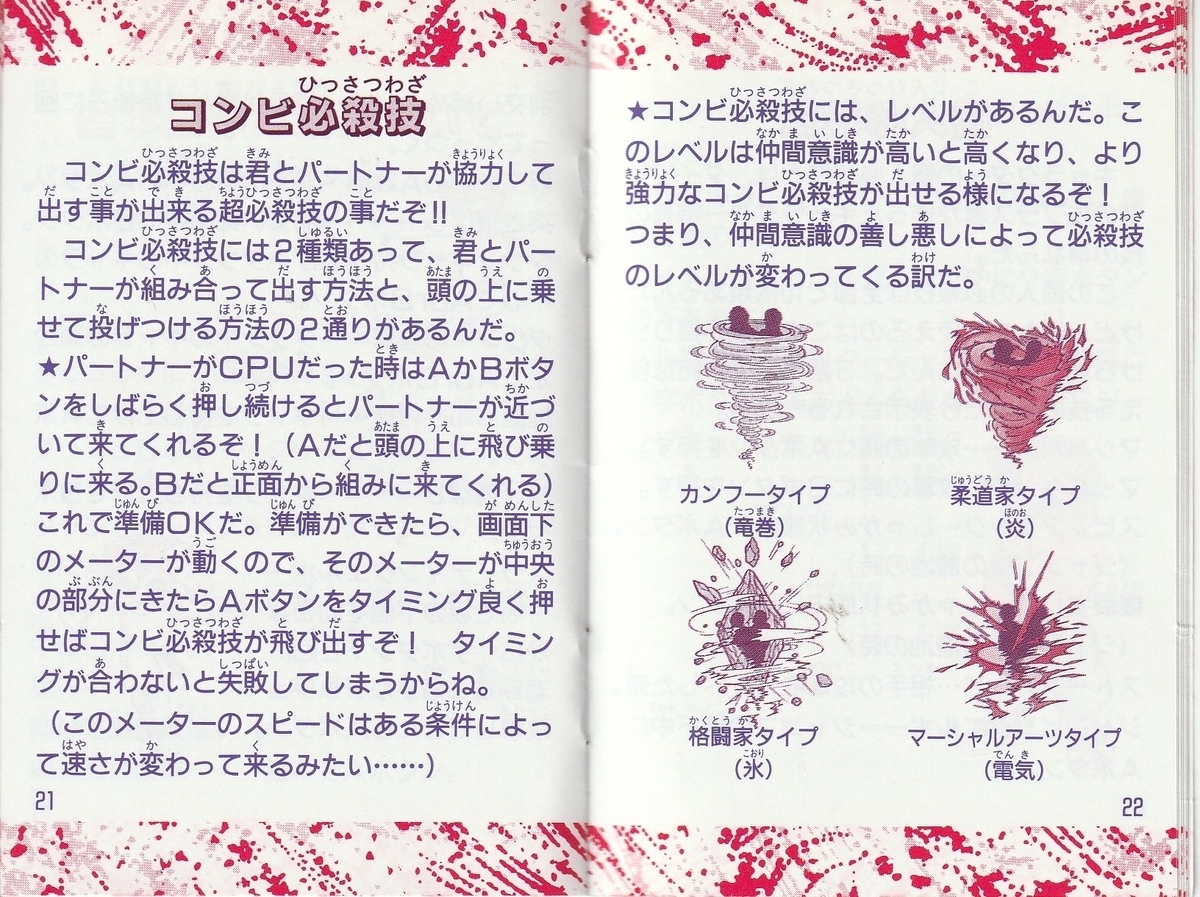 コンビ必殺技
コンビ必殺技は君とパートナーが協力して
出す事が出来る超必殺技の事だぞ!!
コンビ必殺技には2種類あって、君とパー
トナーが組み合って出す方法と、頭の上に乗
せて投げつける方法の2通りがあるんだ。
★パートナーがCPUだった時はAかBボタ
ンをしばらく押し続けるとパートナーが近づ
いて来てくれるぞ!(Aだと頭の上に飛び乗
りに来る。Bだと正面から組みに来てくれる)
これで準備OKだ。準備ができたら、画面下
のメーターが動くので、そのメーターが中央
の部分にきたらAボタンをタイミング良く押
せばコンビ必殺技が飛び出すぞ! タイミン
グが合わないと失敗してしまうからね。
(このメーターのスピードはある条件によっ
て速さが変わって来るみたい……)
21
★コンビ必殺技には、レベルがあるんだ。こ
のレベルは仲間意識が高いと高くなり、より
強力なコンビ必殺技が出せる様になるぞ!
つまり、仲間意識の善し悪しによって必殺技
のレベルが変わってくる訳だ。
カンフータイプ
(竜巻)
柔道家タイプ
(炎)
格闘家タイプ
(氷)
マーシャルアーツタイプ
(電気)
22